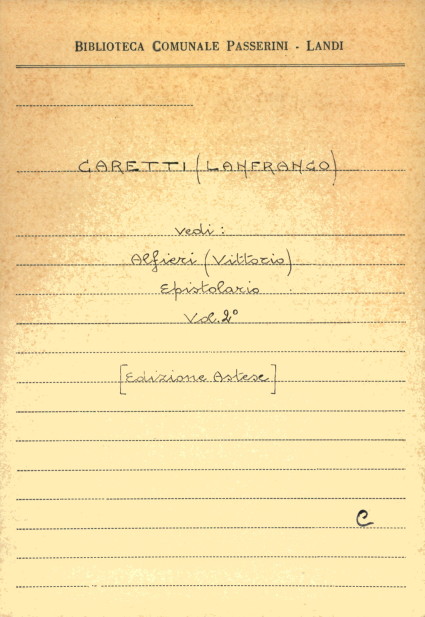 BIBLIOTECA COMUNALE PASSERINI - LANDI
CARETTI (LANFRANCO)
vedi:
Alfieri (Vittorio)
Epistolario
Vol. 2°
[Edizione Astese]
C